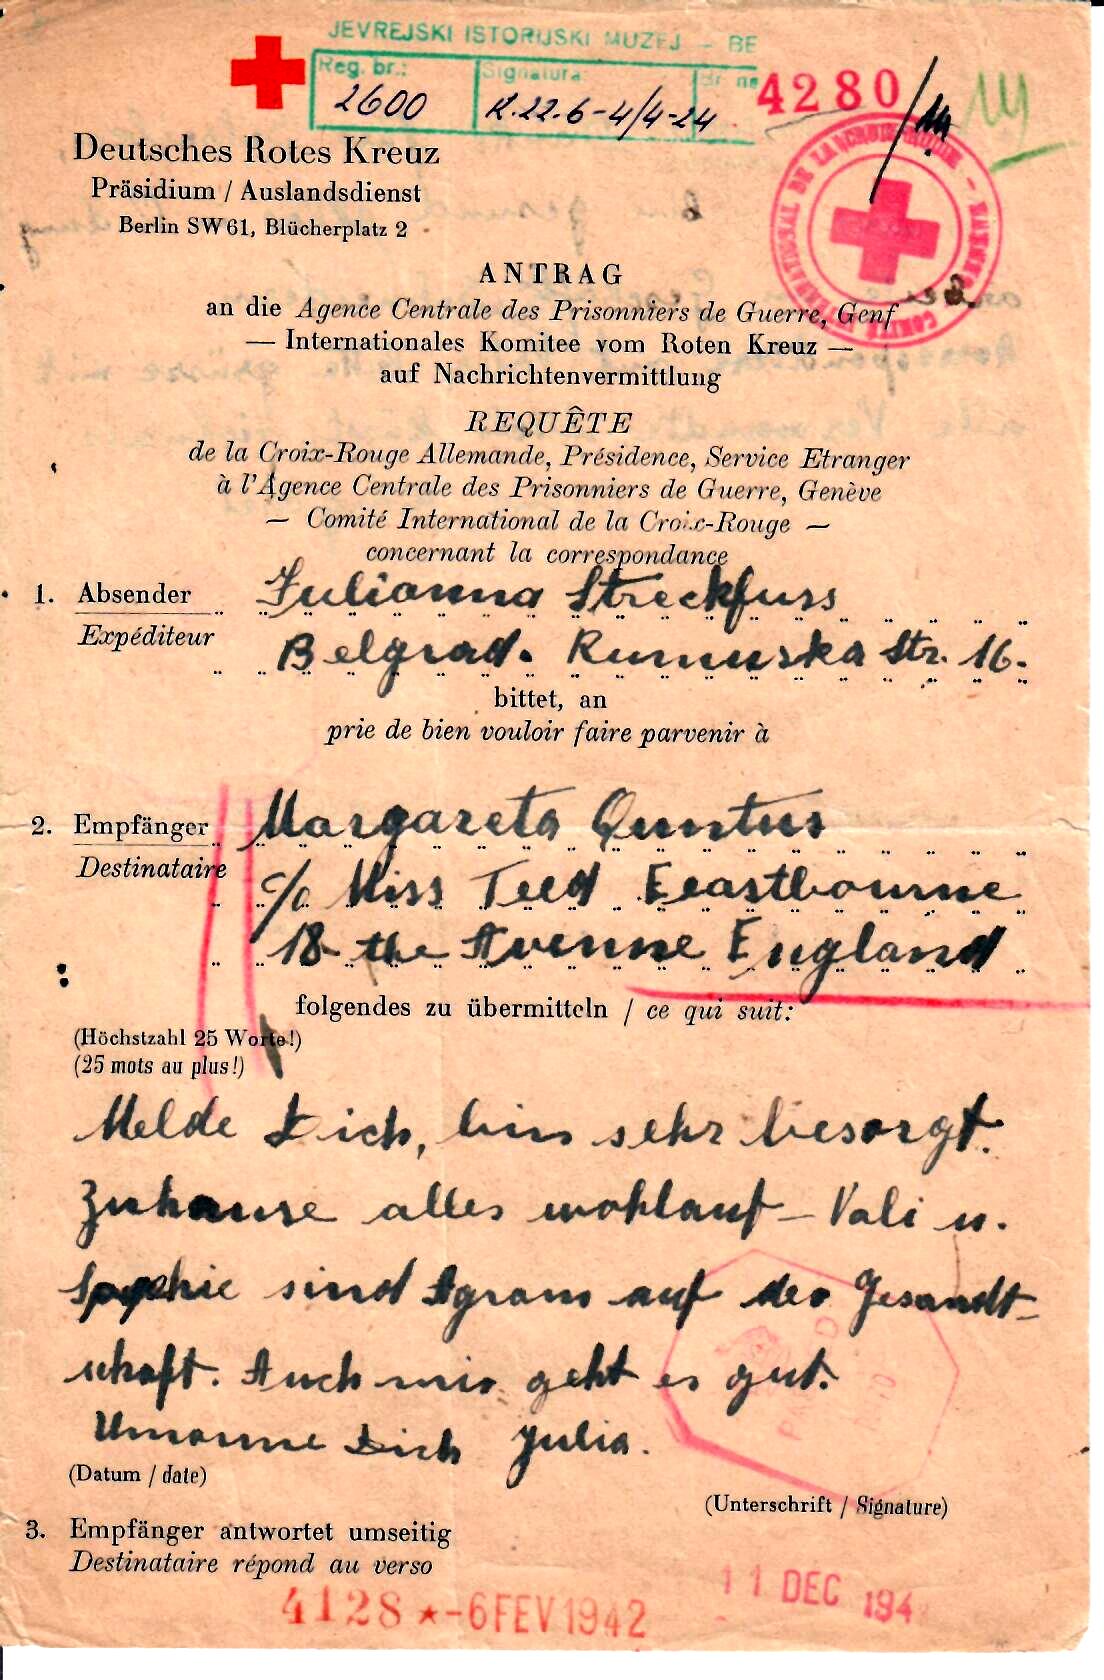 JEVREJSKI ISTORIJSKI MUZEJ – BE
Reg. br.: Signatura: Br. ne
2600 K.22.6-4/4-24
4280
Deutsches Rotes Kreuz
Präsidium / Auslandsdienst
Berlin SW61, Blücherplatz 2
ANTRAG
an die Agence Centrale des Prisonniers de Guerre, Genf
— Internationales Komitee vom Roten Kreuz —
auf Nachrichtenvermittlung
REQUÊTE
de la Croix-Rouge Allemande, Présidence, Service Etranger
à l'Agence Centrale des Prisonniers de Guerre, Genève
— Comité International de la Croix-Rouge —
concernant la correspondance
1. Absender Julianna Streckfuss
Expéditeur Belgrad. Rumunska Str. 16.
bittet, an
prie de bien vouloir faire parvenir à
2. Empfänger Margareta Quntus
Destinataire c/o Miss Teed Eeastbourne
18 the Avenue England
folgendes zu übermitteln / ce qui suit:
(Höchstzahl 25 Worte!)
(25 mots au plus!)
Melde Dich, bin sehr besorgt.
Zuhause alles wohlauf – Vali u.
Sophie sind Agram auf der Gesandt-
schaft. Auch mir geht es gut.
Umarme Dich Julia.
(Datum / date)
(Unterschrift / Signature)
3. Empfänger antwortet umseitig
Destinataire répond au verso
4128 ★ -6 FEV 1942
11 DEC 194